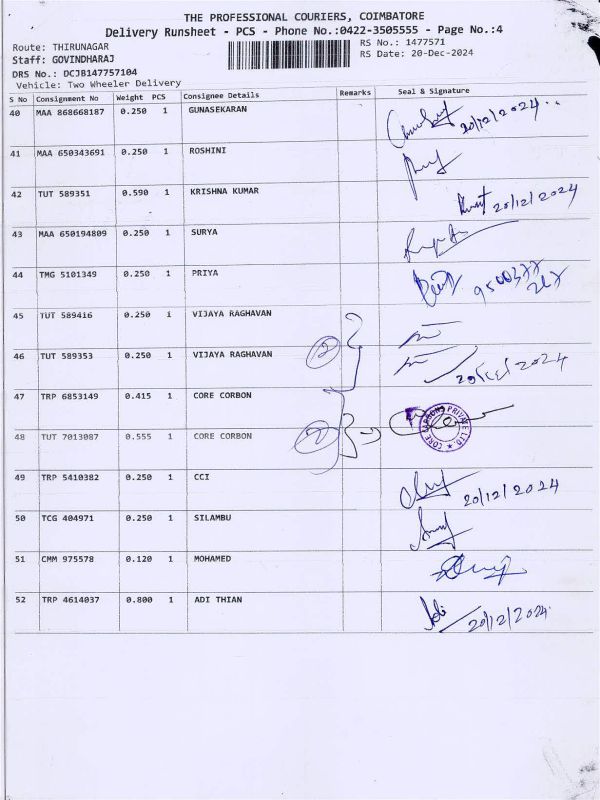 THE PROFESSIONAL COURIERS, COIMBATORE
Delivery Runsheet - PCS - Phone No.:0422-3505555 - Page No.:4
Route: THIRUNAGAR
RS No.: 1477571
Staff: GOVINDHARAJ
RS Date: 20-Dec-2024
DRS No.: DCJB147757104
Vehicle: Two Wheeler Delivery
S No Consignment No Weight PCS Consignee Details Remarks Seal & Signature
40 MAA 868668187 0.250 1 GUNASEKARAN 20/12/2024..
41 MAA 650343691 0.250 1 ROSHINI
42 TUT 589351 0.590 1 KRISHNA KUMAR 20/12/2024
43 MAA 650194809 0.250 1 SURYA
44 TMG 5101349 0.250 1 PRIYA
45 TUT 589416 0.250 1 VIJAYA RAGHAVAN
46 TUT 589353 0.250 1 VIJAYA RAGHAVAN 20/12/2024
47 TRP 6853149 0.415 1 CORE CORBON
CORE CARBONS PRIVATE LTD.
48 TUT 7013087 0.555 1 CORE CORBON
49 TRP 5410382 0.250 1 CCI 20/12/2024
50 TCG 404971 0.250 1 SILAMBU
51 CMM 975578 0.120 1 MOHAMED
52 TRP 4614037 0.800 1 ADI THIAN Adi 20/12/2024